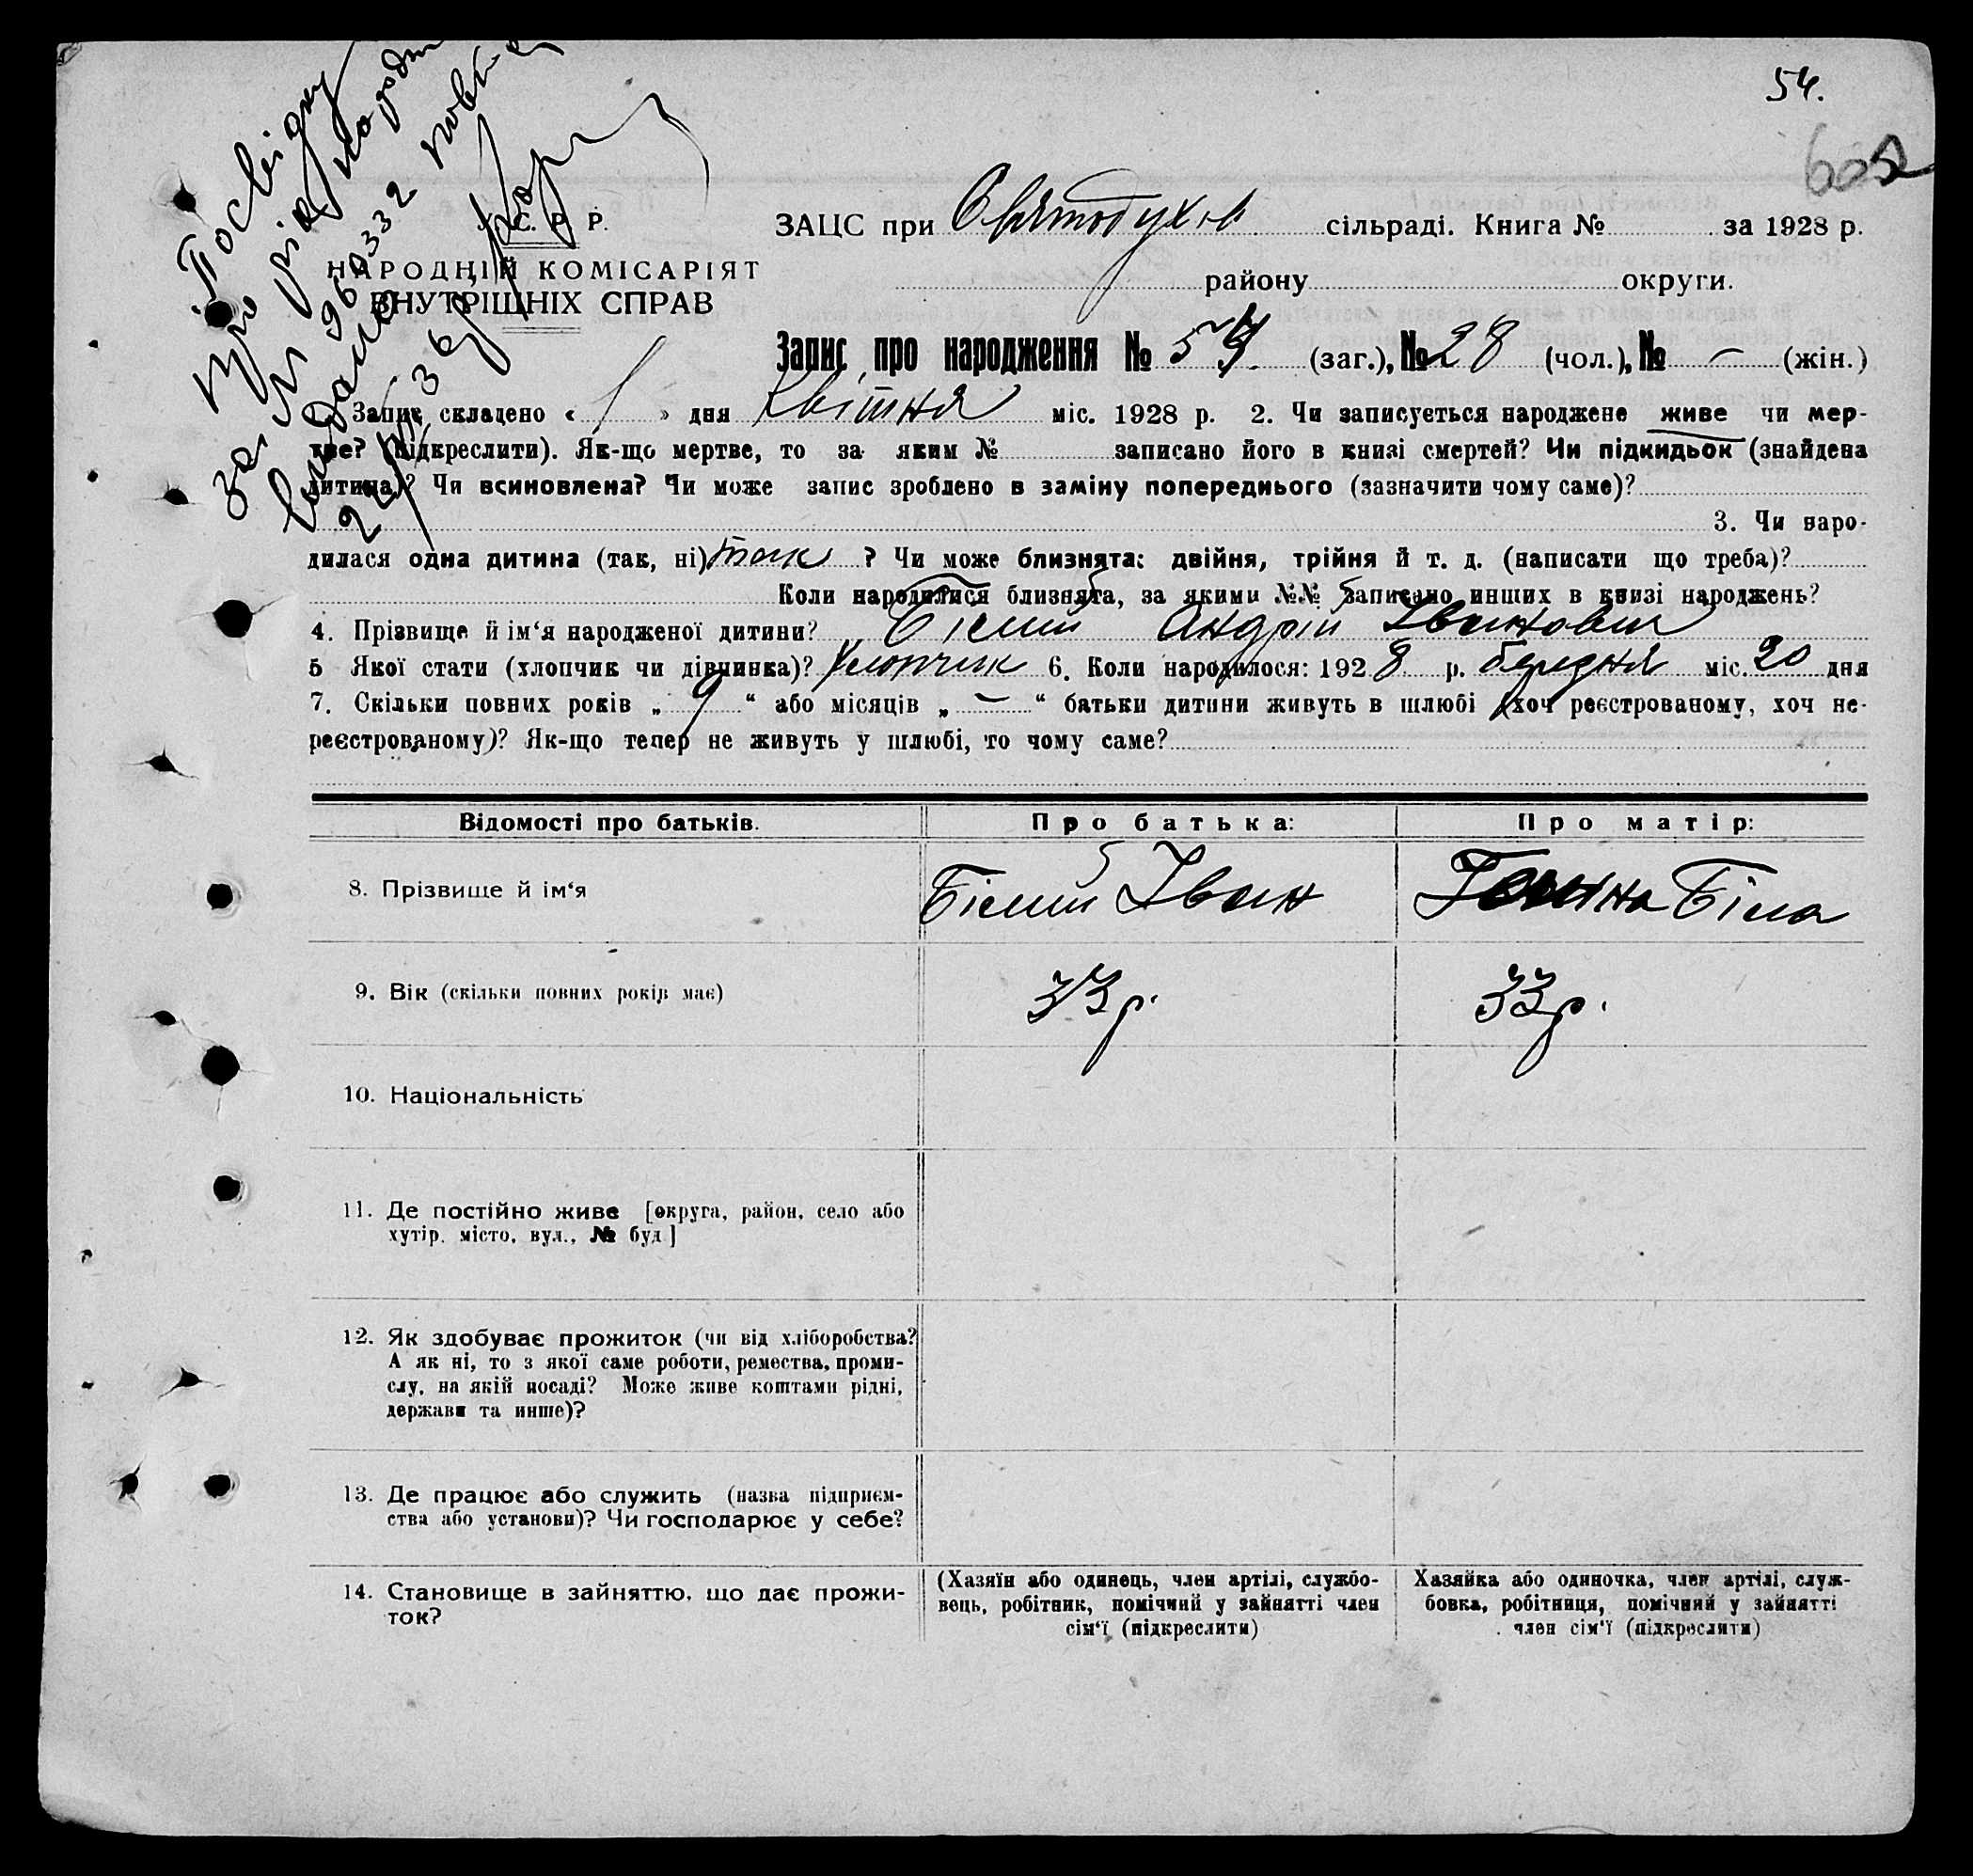 54.
602
Посвідку
про рік народж
за № 960332
видано
У. С. Р. Р.
НАРОДНІЙ КОМІСАРІЯТ
ВНУТРІШНІХ СПРАВ
ЗАЦС при Святодухів. сільраді. Книга № за 1928 р.
району округи.
Запис про народження № 54 (заг.), № 28 (чол.), № — (жін.)
Запис складено « 1 » дня Квітня міс. 1928 р. 2. Чи записується народжене живе чи мер-
тве? (підкреслити). Як-що мертве, то за яким № записано його в книзі смертей? Чи підкидьок (знайдена
дитина)? Чи всиновлена? Чи може запис зроблено в заміну попереднього (зазначити чому саме)?
3. Чи наро-
дилася одна дитина (так, ні) так ? Чи може близнята: двійня, трійня й т. д. (написати що треба)?
Коли народилися близнята, за якими №№ записано инших в книзі народжень?
4. Прізвище й ім‘я народженої дитини? Білий Андрій Іванович
5 Якої стати (хлопчик чи дівчинка)? Хлопчик 6. Коли народилося: 1928 р. березня міс. 20 дня
7. Скільки повних років „ 9 “ або місяців „ — “ батьки дитини живуть в шлюбі (хоч реєстрованому, хоч не-
реєстрованому)? Як-що тепер не живуть у шлюбі, то чому саме?
Відомості про батьків. Про батька: Про матір:
8. Прізвище й ім‘я Білий Іван Біла
9. Вік (скільки повних років має) 33 р. 33 р.
10. Національність
11. Де постійно живе [округа, район, село або
хутір, місто, вул., № буд]
12. Як здобуває прожиток (чи від хліборобства?
А як ні, то з якої саме роботи, ремества, проми-
слу, на якій посаді? Може живе коштами рідні,
держави та инше)?
13. Де працює або служить (назва підприєм-
ства або установи)? Чи господарює у себе?
14. Становище в зайняттю, що дає прожи-
ток?
(Хазяїн або одинець, член артілі, службо-
вець, робітник, помічний у зайнятті член
сім‘ї (підкреслити)
Хазяйка або одиночка, член артілі, служ-
бовка, робітниця, помічний у зайнятті
член сім‘ї (підкреслити)